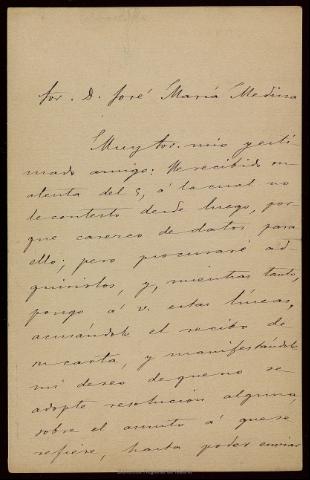 Sor. D. José María Medina
Muy Sor. mio y esti-
mado amigo: He recibido su
atenta del 5, á la cual no
le contesto desde luego, por-
que carezco de datos para
ello; pero procuraré ad-
quirirlos, y, mientras tanto,
pongo á V. estas líneas,
acusándole el recibo de
su carta, y manifestándole
mi deseo de que no se
adopte resolucion alguna,
sobre el asunto á que se
refiere, hasta poder enviar